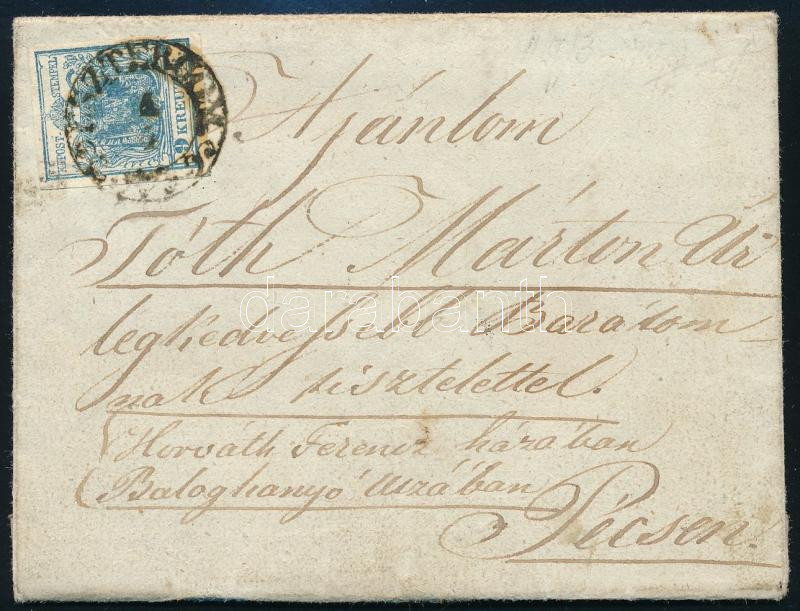 KK POST-STEMPEL
9 KREUZER
Ajánlom
Tóth Márton Úr
legkedvessebb Barátom-
nak tisztelettel.
Horváth Ferencz házában
Baloghanyó Uczában
Pécsen.
darabanth